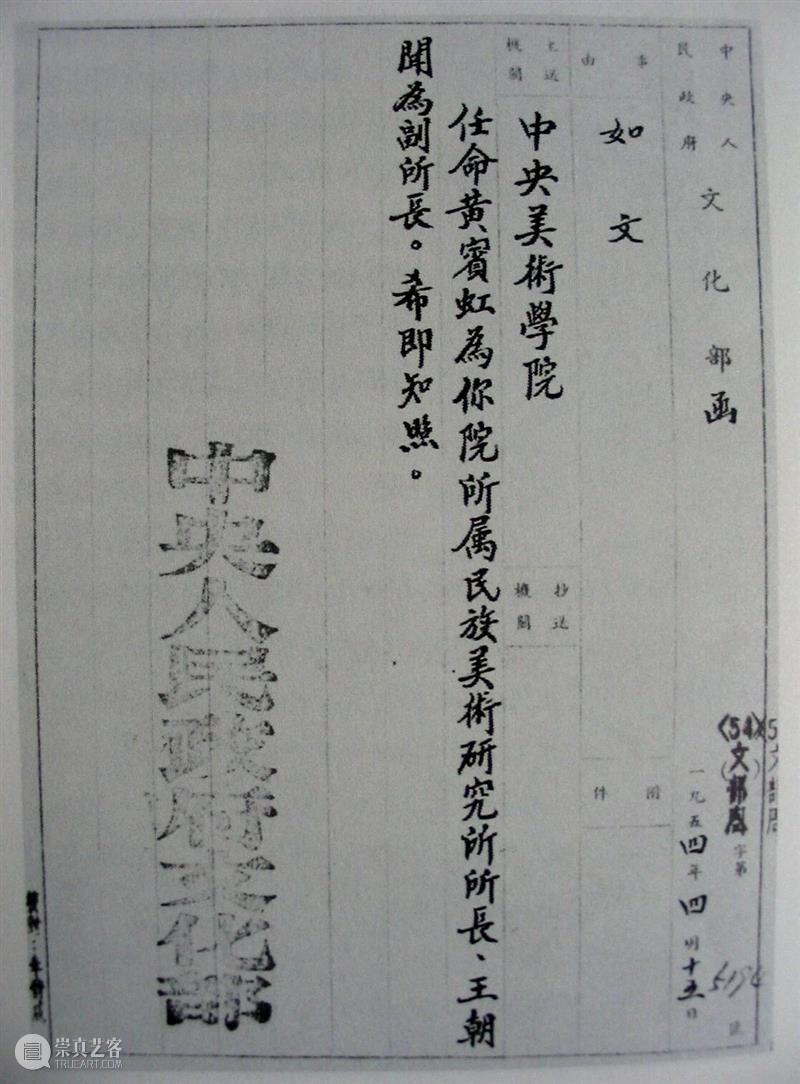 中央人民政府 文化部函
〈54〉文部周字第5194號
一九五四年四月十五日
事由
如文
附件
主送機關
中央美術學院
抄送機關
任命黄賓虹為你院所属民族美術研究所所長、王朝
聞為副所長。希即知照。
中央人民政府文化部
崇真艺客
TRUEART.COM